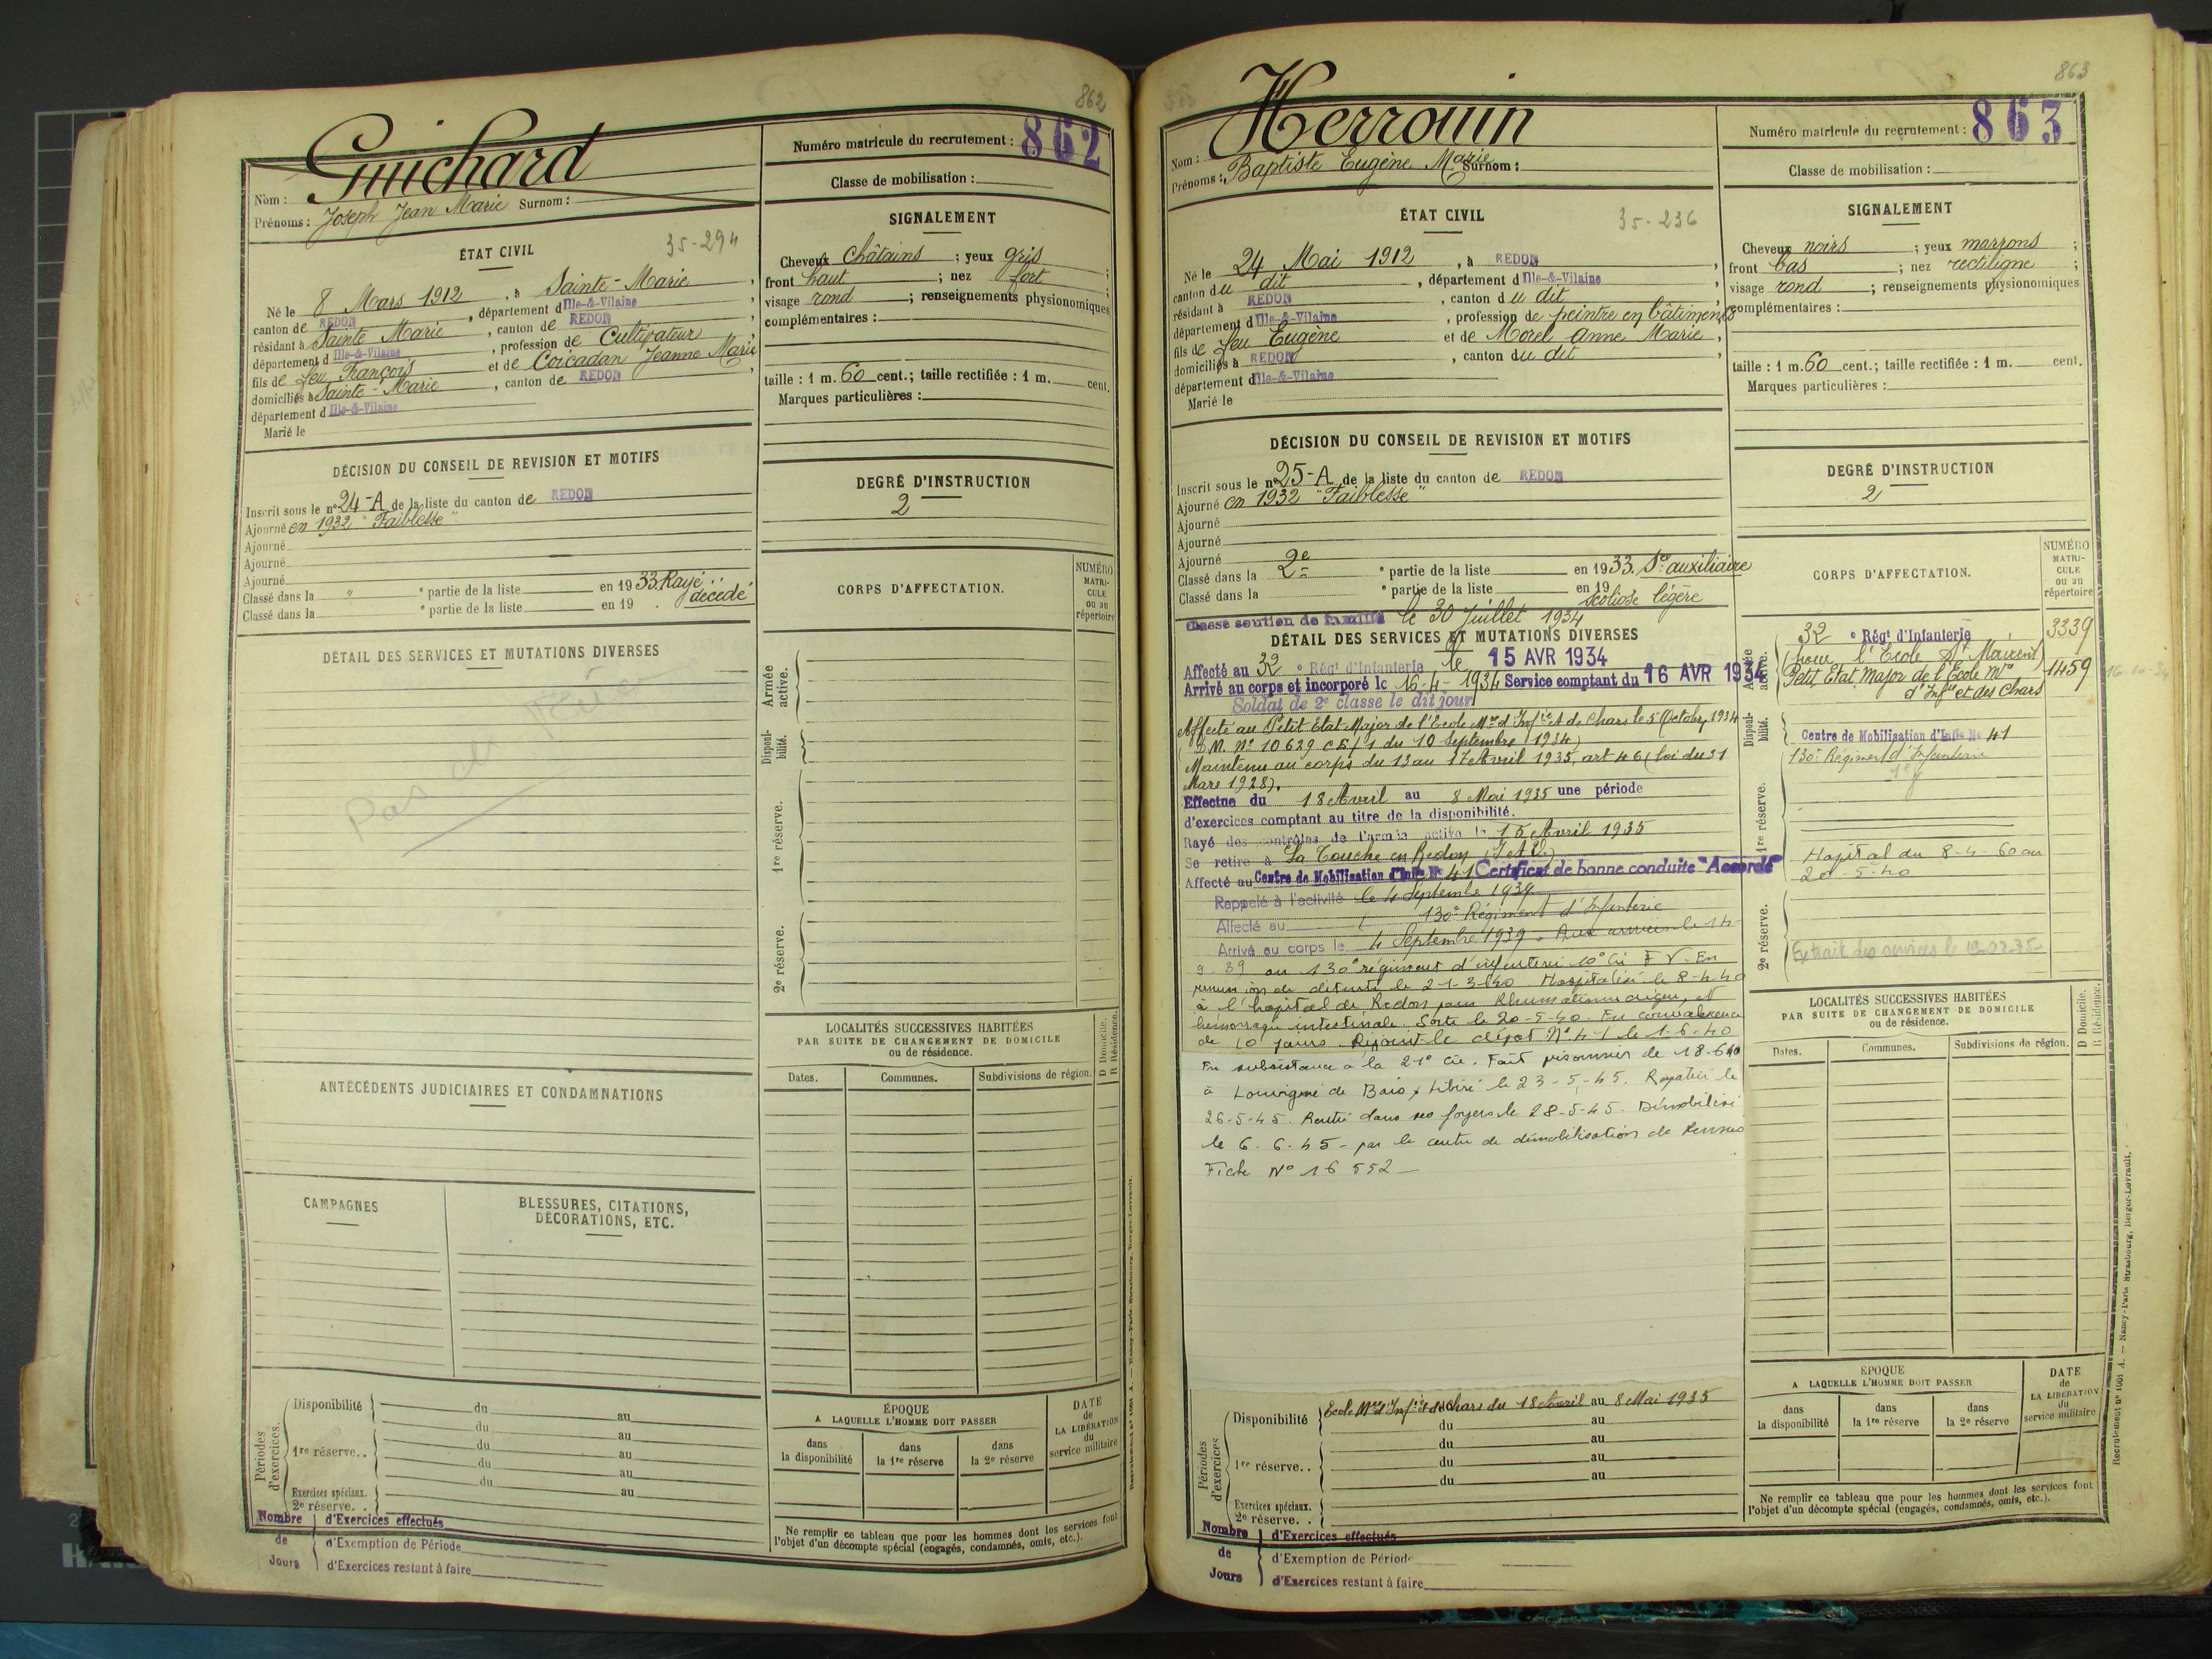 862
Guichard
Nom :
Prénoms : Joseph Jean Marie Surnom :
Numéro matricule du recrutement : 862
Classe de mobilisation :
ÉTAT CIVIL
35-294
Né le 8 Mars 1912, à Sainte-Marie,
canton de REDON, département d Ille-&-Vilaine,
résidant à Sainte Marie, canton de REDON,
département d Ille-&-Vilaine, profession de Cultivateur
fils de feu François et de Coicadan Jeanne Marie
domiciliés à Sainte-Marie, canton de REDON,
département d Ille-&-Vilaine
Marié le
SIGNALEMENT
Cheveux châtains ; yeux gris ;
front haut ; nez fort ;
visage rond ; renseignements physionomiques
complémentaires :
taille : 1 m. 60 cent.; taille rectifiée : 1 m. cent.
Marques particulières :
DÉCISION DU CONSEIL DE REVISION ET MOTIFS
Inscrit sous le n° 24-A de la liste du canton de REDON
Ajourné en 1932 "Faiblesse"
Ajourné
Ajourné
Ajourné
Classé dans la " e partie de la liste en 1933. Rayé :
Classé dans la e partie de la liste en 19 . décédé
DEGRÉ D'INSTRUCTION
2
DÉTAIL DES SERVICES ET MUTATIONS DIVERSES
Pas de
CORPS D'AFFECTATION.
NUMÉRO
MATRI-
CULE
ou au
répertoire
Armée
active.
Disponi-
bilité.
1re réserve.
2e réserve.
ANTÉCÉDENTS JUDICIAIRES ET CONDAMNATIONS
CAMPAGNES
BLESSURES, CITATIONS,
DÉCORATIONS, ETC.
LOCALITÉS SUCCESSIVES HABITÉES
PAR SUITE DE CHANGEMENT DE DOMICILE
ou de résidence.
D Domicile.
R Résidence.
Dates.
Communes.
Subdivisions de région.
Périodes
d'exercices.
Disponibilité du au
du au
1re réserve. . du au
du au
du au
Exercices spéciaux.
2e réserve. .
Nombre
de
Jours
d'Exercices effectués
d'Exemption de Période
d'Exercices restant à faire
ÉPOQUE
A LAQUELLE L'HOMME DOIT PASSER
dans
la disponibilité
dans
la 1re réserve
dans
la 2e réserve
DATE
de
LA LIBÉRATION
du
service militaire
Ne remplir ce tableau que pour les hommes dont les services font
l'objet d'un décompte spécial (engagés, condamnés, omis, etc.).
863
Herrouin
Nom :
Prénoms : Baptiste Eugène Marie Surnom :
Numéro matricule du recrutement : 863
Classe de mobilisation :
ÉTAT CIVIL
35-236
Né le 24 Mai 1912, à REDON,
canton du dit, département d Ille-&-Vilaine
résidant à REDON, canton du dit,
département d Ille-&-Vilaine, profession de peintre en bâtiments
fils de feu Eugène et de Morel Anne Marie,
domiciliés à REDON, canton du dit,
département d Ille-&-Vilaine
Marié le
SIGNALEMENT
Cheveux noirs ; yeux marrons ;
front bas ; nez rectiligne ;
visage rond ; renseignements physionomiques
complémentaires :
taille : 1 m. 60 cent.; taille rectifiée : 1 m. cent.
Marques particulières :
DÉCISION DU CONSEIL DE REVISION ET MOTIFS
Inscrit sous le n° 25-A de la liste du canton de REDON
Ajourné en 1932 "Faiblesse"
Ajourné
Ajourné
Ajourné
Classé dans la 2e e partie de la liste en 1933. Sce auxiliaire
Classé dans la e partie de la liste en 19 scoliose légère
Classé soutien de famille le 30 Juillet 1934
DEGRÉ D'INSTRUCTION
2
DÉTAIL DES SERVICES ET MUTATIONS DIVERSES
Affecté au 32 e Régt d'Infanterie le 15 AVR 1934
Arrivé au corps et incorporé le 16-4-1934 Service comptant du 16 AVR 1934
Soldat de 2e classe le dit jour
Affecté au Petit Etat Major de l'Ecole Mre d'Infie et de Chars le 5 Octobre 1934
D.M. N° 10629 CE/1 du 10 Septembre 1934)
Maintenu au corps du 13 au 17 Avril 1935, art 46 (loi du 31
Mars 1928).
Effectue du 18 Avril au 8 Mai 1935 une période
d'exercices comptant au titre de la disponibilité.
Rayé des contrôles de l'armée active le 15 Avril 1935
Se retire à La Touche en Redon (I et V.)
Affecté au Centre de Mobilisation d'Infie N° 41 Certificat de bonne conduite "Accordé"
Rappelé à l'activité le 4 Septembre 1939
Affecté au 130e Régiment d'Infanterie
Arrivé au corps le 4 Septembre 1939. Aux armées le 14
9-39 au 130e régiment d'infanterie 10e Cie F V. En
permission de détente le 21-3-40 Hospitalisé le 8-4-40
à l'hopital de Redon pour Rhumatisme aigu, et
hémorragie intestinale. Sorti le 20-5-40. En convalescence
de 10 jours Rejoint le dépot N° 41 le 1-6-40
En subsistance à la 21e Cie. Fait prisonnier le 18-6-40
à Louvigné de Bais, Libéré le 23-5-45. Rapatrié le
26-5-45. Rentré dans ses foyers le 28-5-45. Démobilisé
le 6.6.45 - par le centre de démobilisation de Rennes
Fiche N° 16 552
CORPS D'AFFECTATION.
NUMÉRO
MATRI-
CULE
ou au
répertoire
Armée
active.
32 e Régt d'Infanterie 3339
(pour l'Ecole St Maixent)
Petit Etat Major de l'Ecole Mre 1459
d'Infie et des Chars
16-10-34
Disponi-
bilité.
Centre de Mobilisation d'Infie N° 41
1re réserve.
130e Régiment d'Infanterie
Hopital du 8-4-60 au
20-5-40
2e réserve.
Extrait des services le
LOCALITÉS SUCCESSIVES HABITÉES
PAR SUITE DE CHANGEMENT DE DOMICILE
ou de résidence.
D Domicile.
R Résidence.
Dates.
Communes.
Subdivisions de région.
Périodes
d'exercices
Disponibilité Ecole Mre d'Infie et de Chars du 18 Avril au 8 Mai 1935
du au
du au
1re réserve. . du au
du au
Exercices spéciaux.
2e réserve. .
Nombre
de
Jours
d'Exercices effectués
d'Exemption de Période
d'Exercices restant à faire
ÉPOQUE
A LAQUELLE L'HOMME DOIT PASSER
dans
la disponibilité
dans
la 1re réserve
dans
la 2e réserve
DATE
de
LA LIBÉRATION
du
service militaire
Ne remplir ce tableau que pour les hommes dont les services font
l'objet d'un décompte spécial (engagés, condamnés, omis, etc.).
Recrutement n° 1001 A. — Nancy-Paris-Strasbourg, Berger-Levrault.